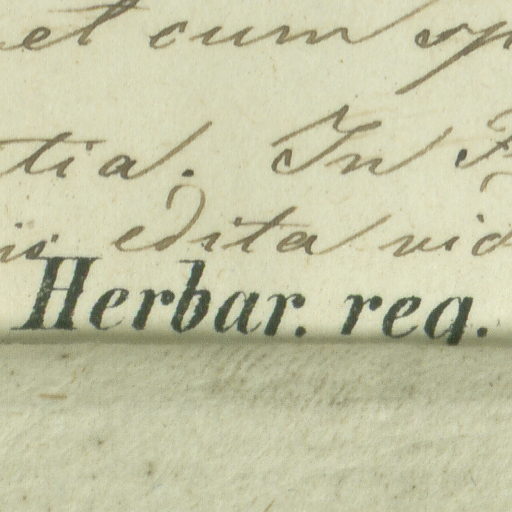 et cum sp
tia. In F
is edita vid
Herbar. reg.